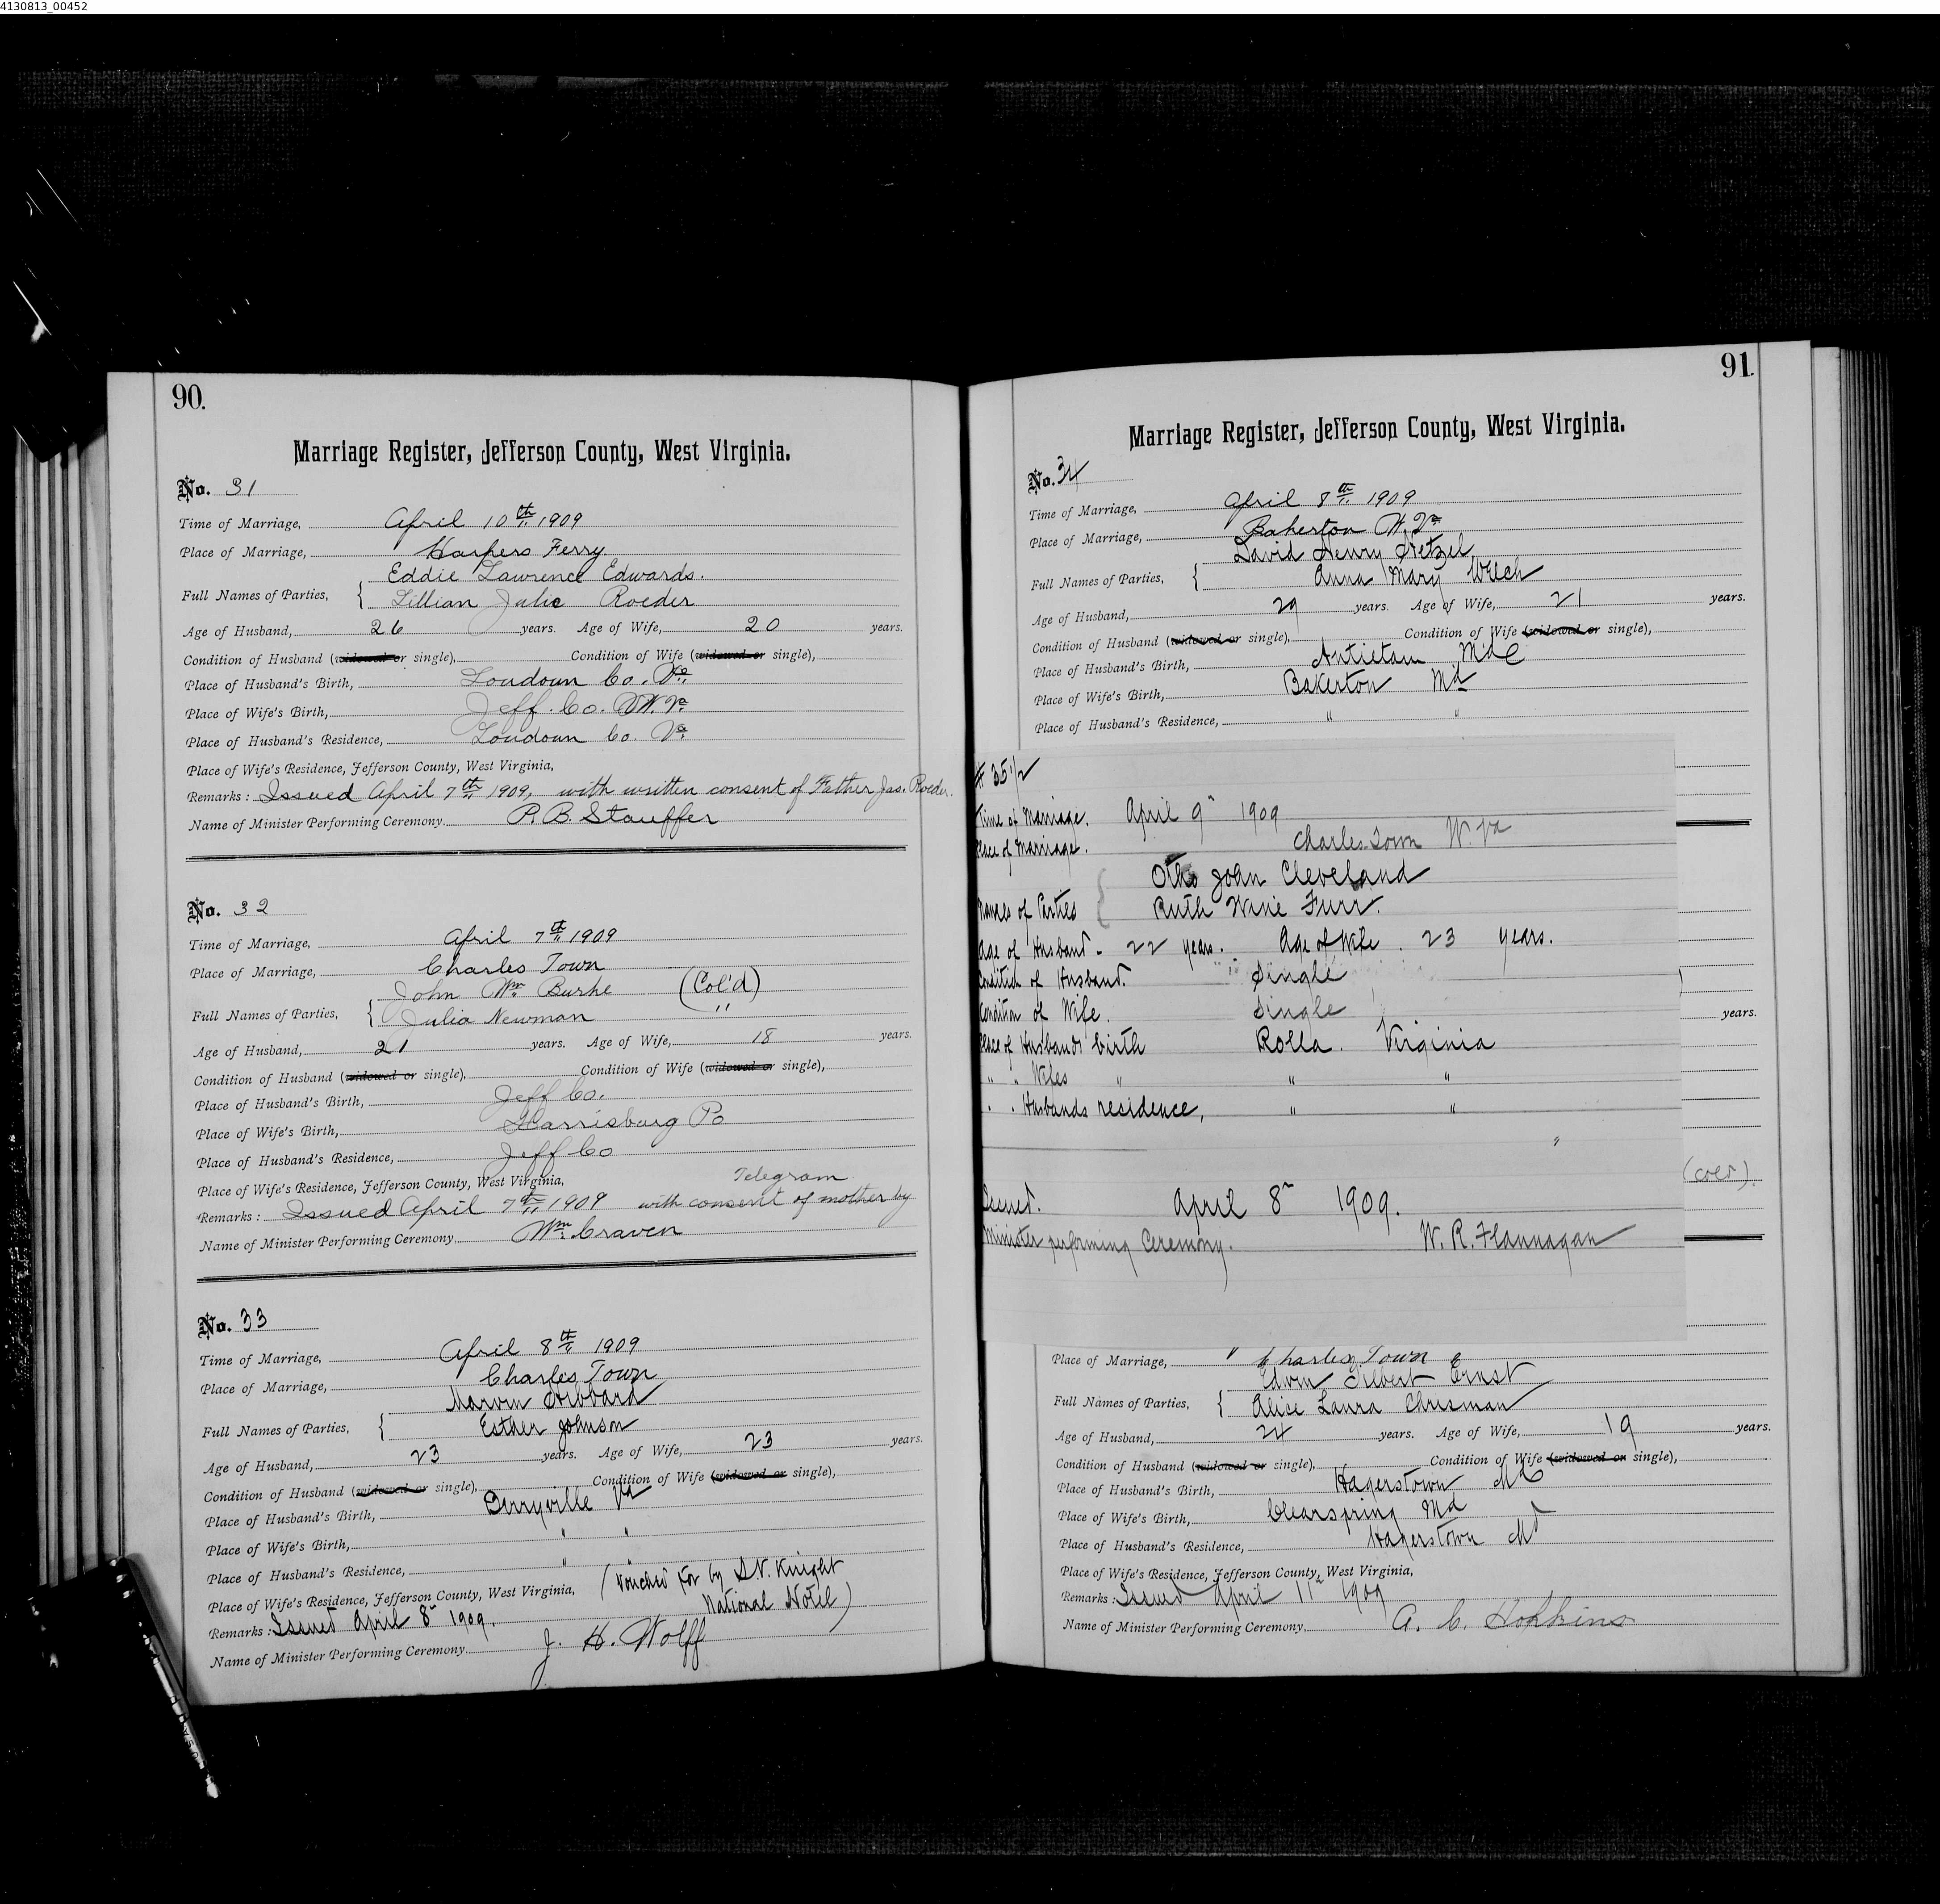 4130813_00452
90.
Marriage Register, Jefferson County, West Virginia.
No. 31
Time of Marriage, April 10th 1909
Place of Marriage, Harpers Ferry
Eddie Lawrence Edwards.
Full Names of Parties, { Lillian Julia Roeder
Age of Husband, 26 years. Age of Wife, 20 years.
Condition of Husband (widowed or single), Condition of Wife (widowed or single),
Place of Husband's Birth, Loudoun Co. Va
Place of Wife's Birth, Jeff. Co. W. Va
Place of Husband's Residence, Loudoun Co. Va
Place of Wife's Residence, Jefferson County, West Virginia,
Remarks: Issued April 7th 1909, with written consent of Father Jas. Roeder.
Name of Minister Performing Ceremony P. B. Stauffer
No. 32
Time of Marriage, April 7th 1909
Place of Marriage, Charles Town
John Wm Burke (Col'd)
Full Names of Parties, { Julia Newman "
Age of Husband, 21 years. Age of Wife, 18 years.
Condition of Husband (widowed or single), Condition of Wife (widowed or single),
Place of Husband's Birth, Jeff Co.
Place of Wife's Birth, Harrisburg Pa
Place of Husband's Residence, Jeff Co
Place of Wife's Residence, Jefferson County, West Virginia, Telegram
Remarks: Issued April 7th 1909 with consent of mother by
Name of Minister Performing Ceremony Wm Craven
No. 33
Time of Marriage, April 8th 1909
Place of Marriage, Charles Town
Marvin Hibbard
Full Names of Parties, { Esther Johnson
Age of Husband, 23 years. Age of Wife, 23 years.
Condition of Husband (widowed or single), Condition of Wife (widowed or single),
Place of Husband's Birth, Berryville Va
Place of Wife's Birth, " "
Place of Husband's Residence, "
Place of Wife's Residence, Jefferson County, West Virginia, (Vouched for by S. N. Knight
National Hotel)
Remarks: Issued April 8" 1909.
Name of Minister Performing Ceremony J. H. Wolff
91.
Marriage Register, Jefferson County, West Virginia.
No. 34
Time of Marriage, April 8th 1909
Place of Marriage, Bakerton W. Va
David Henry Wetzel
Full Names of Parties, { Anna Mary Welch
Age of Husband, 29 years. Age of Wife, 21 years.
Condition of Husband (widowed or single), Condition of Wife (widowed or single),
Place of Husband's Birth, Antietam Md
Place of Wife's Birth, Bakerton Md
Place of Husband's Residence, " "
# 35 1/2
Time of Marriage. April 9" 1909
Place of Marriage. Charles Town W. Va
Otho John Cleveland
Names of Parties { Ruth Wine Furr.
Age of Husband - 22 years. Age of Wife. 23 years.
Condition of Husband. Single
Condition of Wife. Single
years.
Place of Husbands birth Rolla. Virginia
" " Wifes " " "
" " Husbands residence, " "
"
(cold).
Issued. April 8" 1909.
Minister performing Ceremony. W. R. Flannagan
Place of Marriage, " Charles Town
Edwin Gilbert Ernst
Full Names of Parties, { Alice Laura Chrisman
Age of Husband, 24 years. Age of Wife, 19 years.
Condition of Husband (widowed or single), Condition of Wife (widowed or single),
Place of Husband's Birth, Hagerstown Md
Place of Wife's Birth, Clearspring Md
Place of Husband's Residence, Hagerstown Md
Place of Wife's Residence, Jefferson County, West Virginia,
Remarks: Issued April 11" 1909
Name of Minister Performing Ceremony, A. C. Hopkins